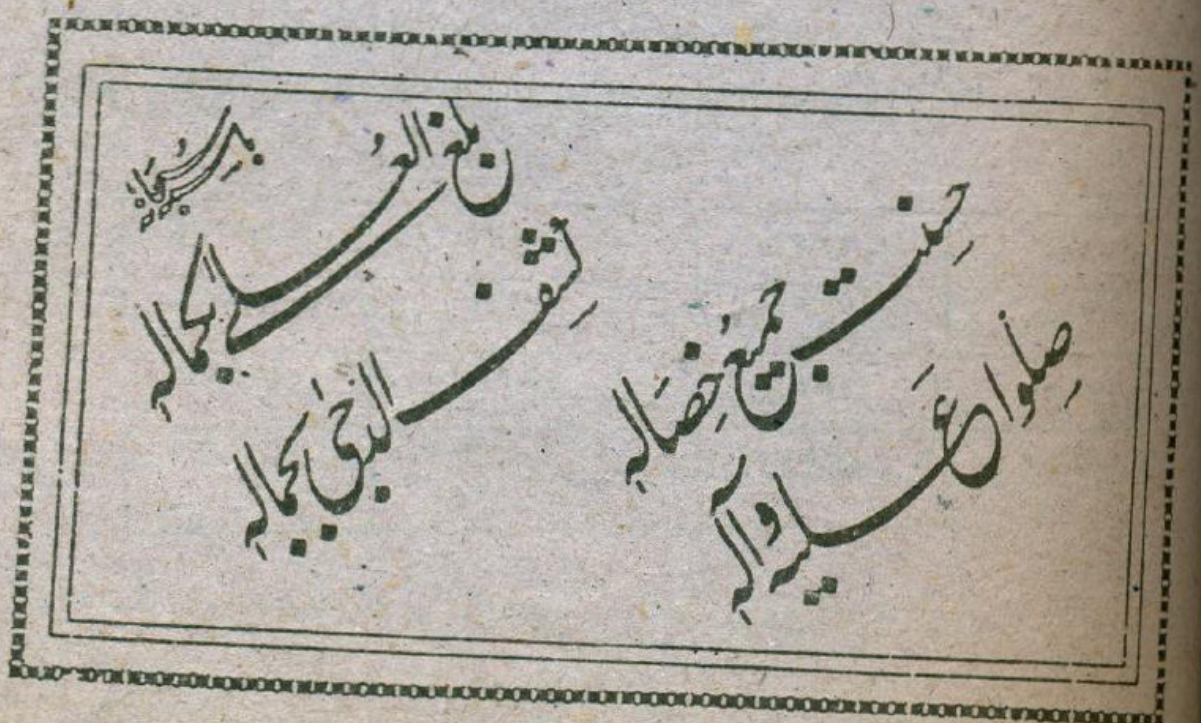 باسمہ سبحانہ
بلغ العُلےٰ بکمالہٖ
کشف الدجیٰ بجمالہٖ
حسنت جمیعُ خِصَالہٖ
صلّوا عَلیہ وآلہٖ